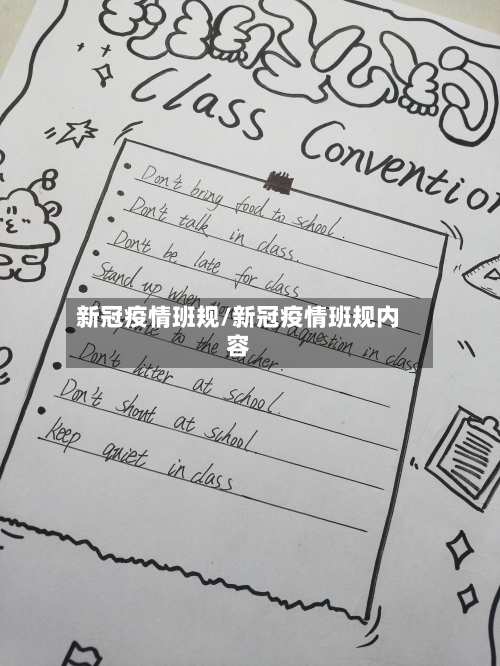 Class Convention
Don't bring food to school.
Don't talk in class.
Don't be late for class
Stand up when question in class
新冠疫情班规/新冠疫情班规内
容
to the teacher.
Don't litter at school.
Don't shout at school.
keep quiet in class